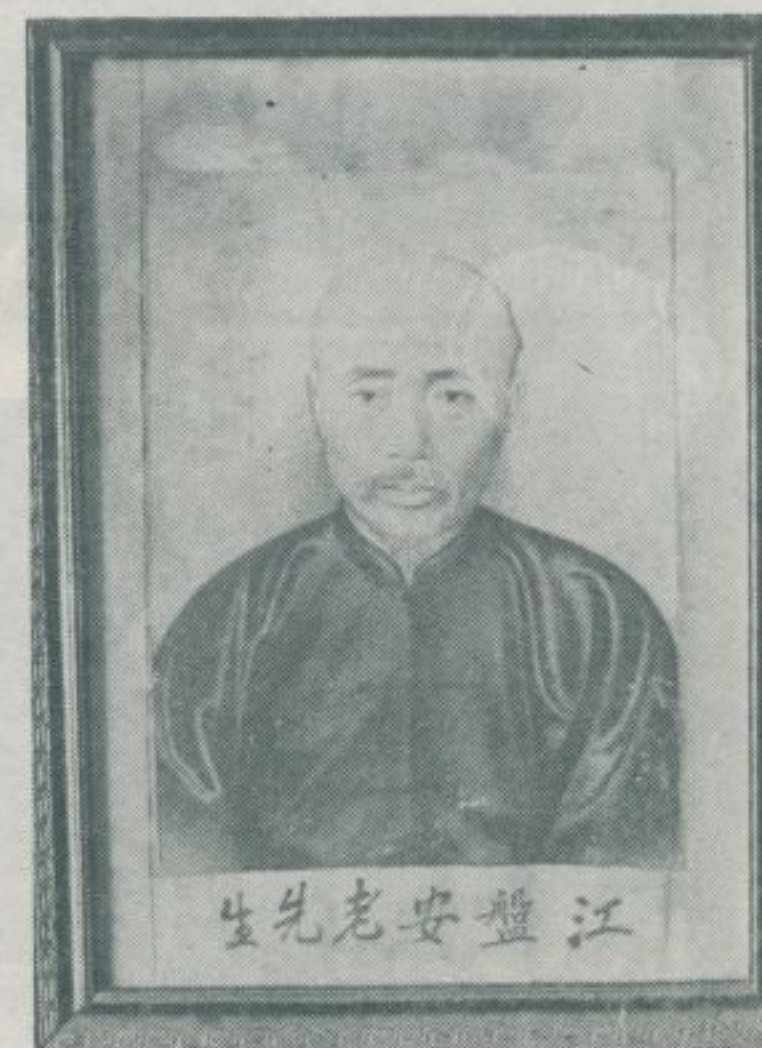 江盤安老先生